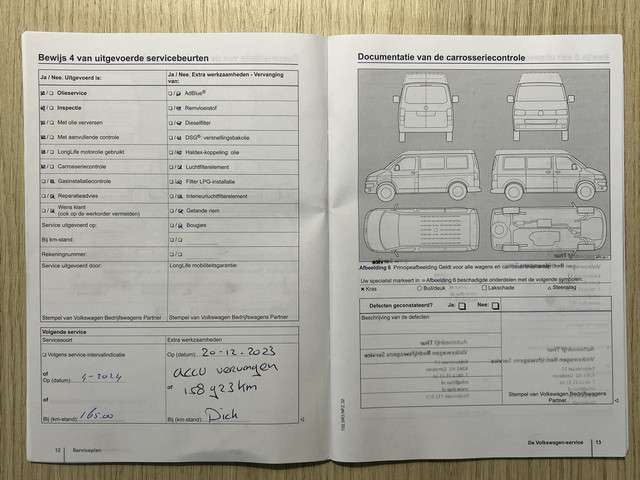 Bewijs 4 van uitgevoerde servicebeurten
Ja / Nee. Uitgevoerd is:
Ja / Nee. Extra werkzaamheden - Vervanging van:
Olieservice
AdBlue®
Inspectie
Remvloeistof
Met olie verversen
Dieselfilter
Met aanvullende controle
DSG® versnellingsbakolie
LongLife motorolie gebruikt
Haldex-koppeling: olie
Carrosseriecontrole
Luchtfilterelement
Gasinstallatiecontrole
Filter LPG-installatie
Reparatieadvies
Interieurluchtfilterelement
Wens klant
(ook op de werkorder vermelden)
Getande riem
Service uitgevoerd op:
Bougies
Bij km-stand:
Rekeningnummer:
Service uitgevoerd door:
LongLife mobiliteitsgarantie:
Stempel van Volkswagen Bedrijfswagens Partner
Stempel van Volkswagen Bedrijfswagens Partner
Volgende service
Servicesoort
Extra werkzaamheden
Volgens service-intervalindicatie
Op (datum): 20-12.2023
accu vervangen
of
Op (datum): 4-2024
of
158 923 km
of
Bij (km-stand): 165.00
Bij (km-stand): Dick
12 Serviceplan
Documentatie van de carrosseriecontrole
Afbeelding 6 Principeafbeelding Geldt voor alle wagens en carrosserievarianten
Uw specialist markeert in ⇒ Afbeelding 6 beschadigde onderdelen met de volgende symbolen:
× Kras
○ Buil/deuk
□ Lakschade
△ Steenslag
Defecten geconstateerd? Ja: Nee:
Beschrijving van de defecten:
Stempel van Volkswagen Bedrijfswagens
Partner
De Volkswagen-service 13